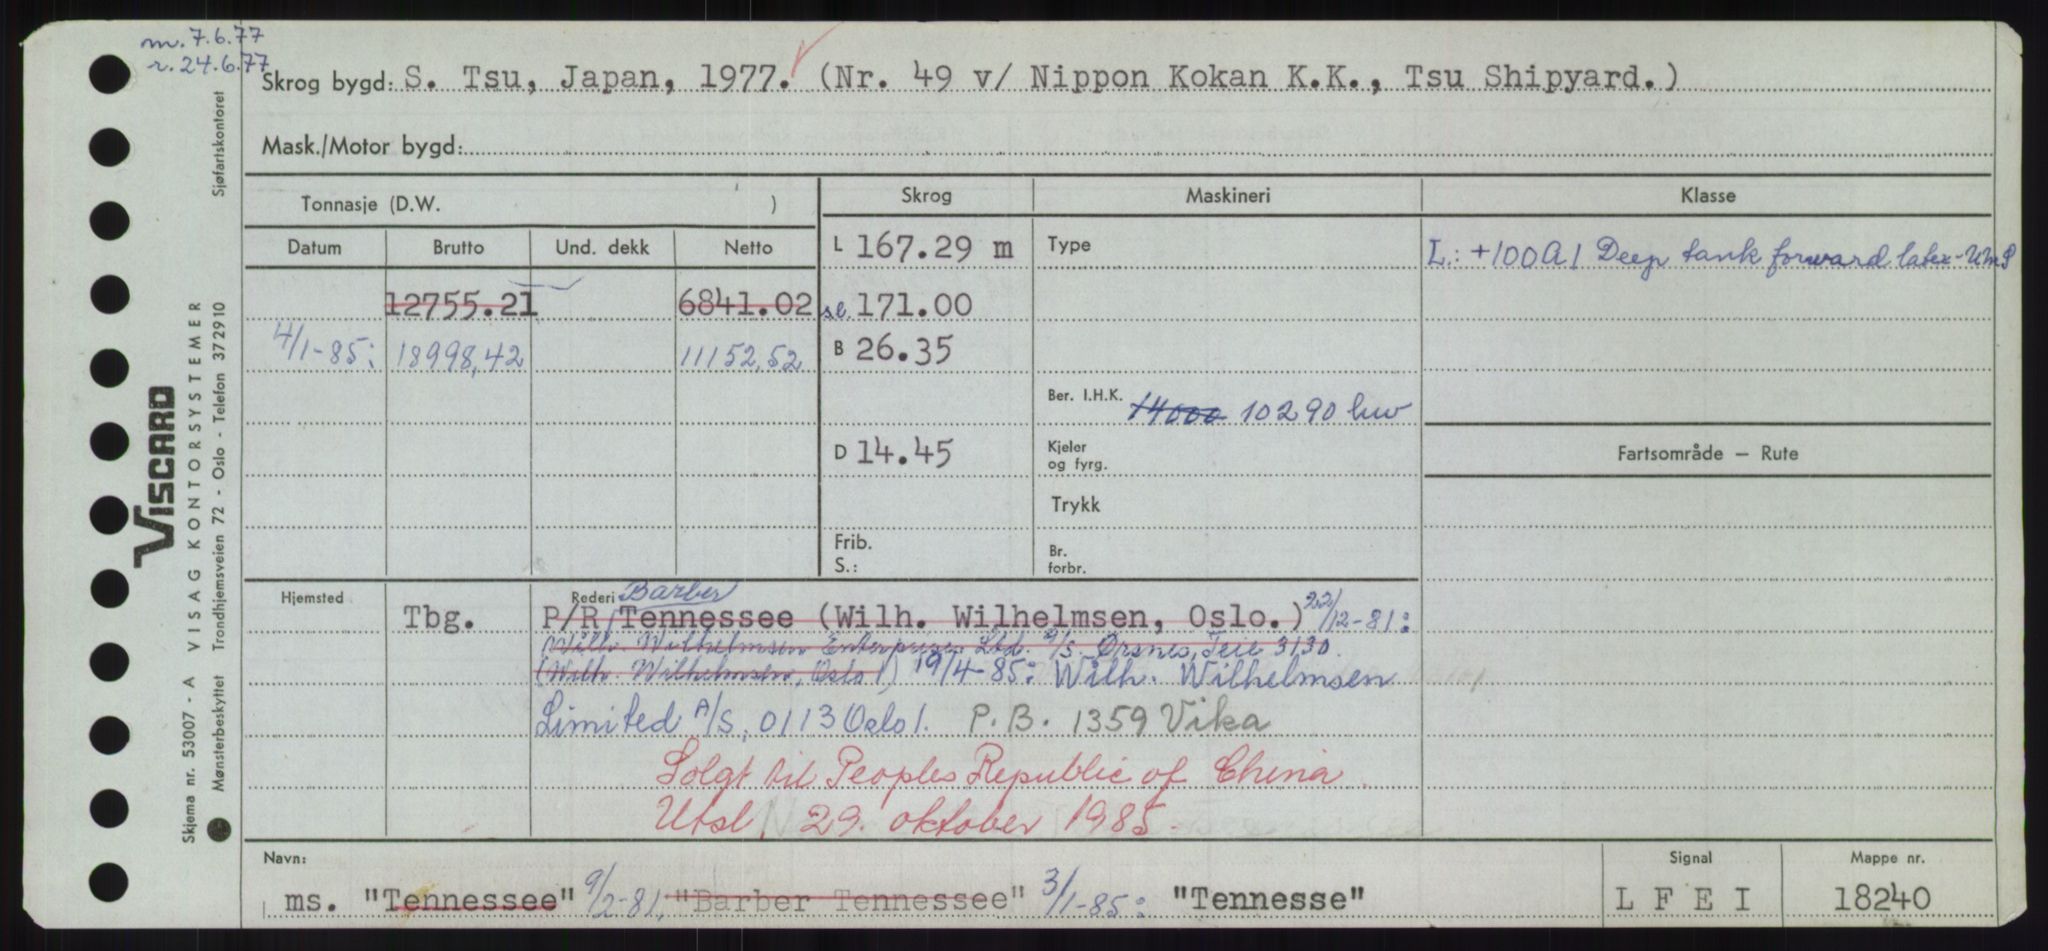 m. 7.6.77
r. 24.6.77
Skrog bygd: S. Tsu, Japan, 1977. (Nr. 49 v/ Nippon Kokan K.K., Tsu Shipyard.)
Mask./Motor bygd:
Tonnasje (D.W. )
Skrog
Maskineri
Klasse
Datum Brutto Und. dekk Netto
L 167.29 m
Type
L.: +100A1 Deep tank forward latex-UMS
12755.21 6841.02
sl. 171.00
4/1-85: 18998,42 11152,52
B 26.35
Ber. I.H.K. 14000 10290 kw
D 14.45
Kjeler
og fyrg.
Fartsområde – Rute
Trykk
Frib.
S.:
Br.
forbr.
Hjemsted
Rederi Barber
Tbg. P/R Tennessee (Wilh. Wilhelmsen, Oslo.) 22/12-81:
Wilh. Wilhelmsen Enterprises Ltd. A/S. Ørsnes, Teie 3130.
(Wilh. Wilhelmsen, Oslo 1) 19/4-85: Wilh. Wilhelmsen
Limited A/S, 0113 Oslo 1. P.B. 1359 Vika
Solgt til Peoples Republic of China.
Utsl. 29. oktober 1985.
Navn:
ms. "Tennessee" 9/2-81. "Barber Tennessee" 3/1-85: "Tennesse"
Signal
L F E I
Mappe nr.
18240
VISCARD
Skjema nr. 53007 - A VISAG KONTORSYSTEMER
Mønsterbeskyttet Trondhjemsveien 72 - Oslo - Telefon 372910 Sjøfartskontoret